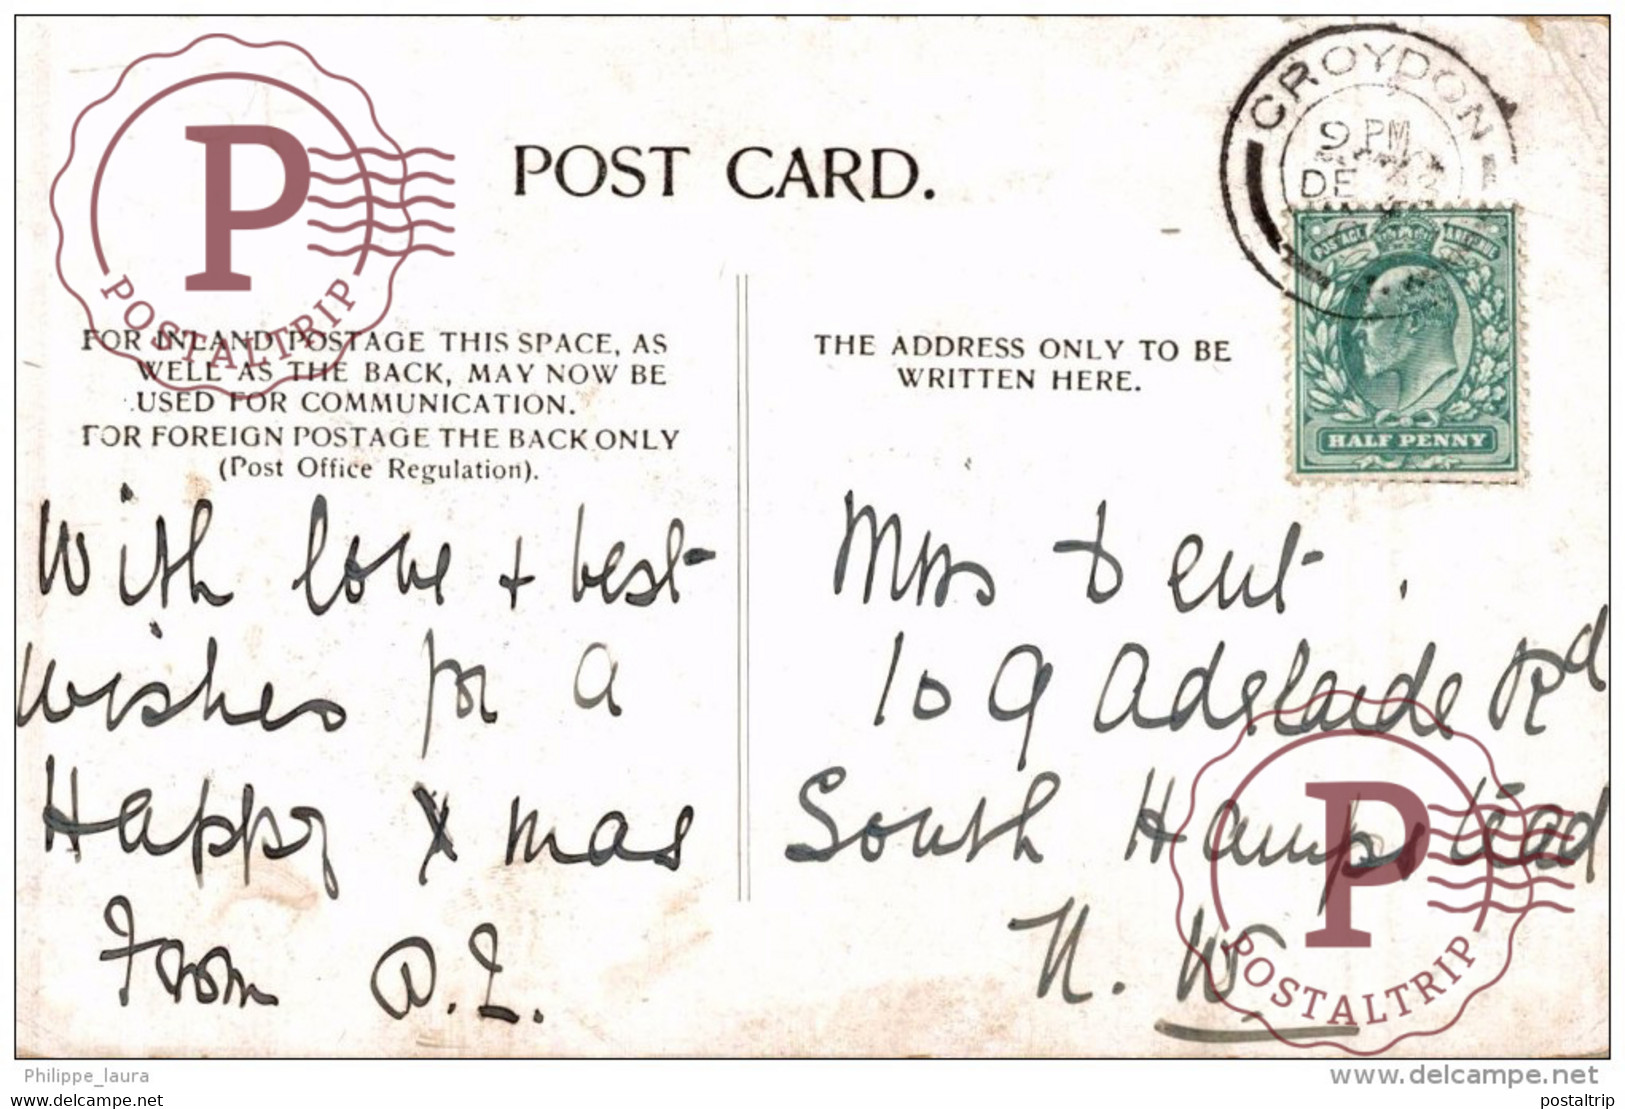 POST CARD.
CROYDON
9 PM
DE 23
POSTAGE & REVENUE
HALF PENNY
P
POSTALTRIP
FOR INLAND POSTAGE THIS SPACE, AS
WELL AS THE BACK, MAY NOW BE
USED FOR COMMUNICATION.
FOR FOREIGN POSTAGE THE BACK ONLY
(Post Office Regulation).
THE ADDRESS ONLY TO BE
WRITTEN HERE.
With love + best
wishes for a
Happy Xmas
From D.L.
Mrs Dent.
109 Adelaide Rd
South Hampstead
N.W
P
POSTALTRIP
Philippe_laura
www.delcampe.net
www.delcampe.net
postaltrip